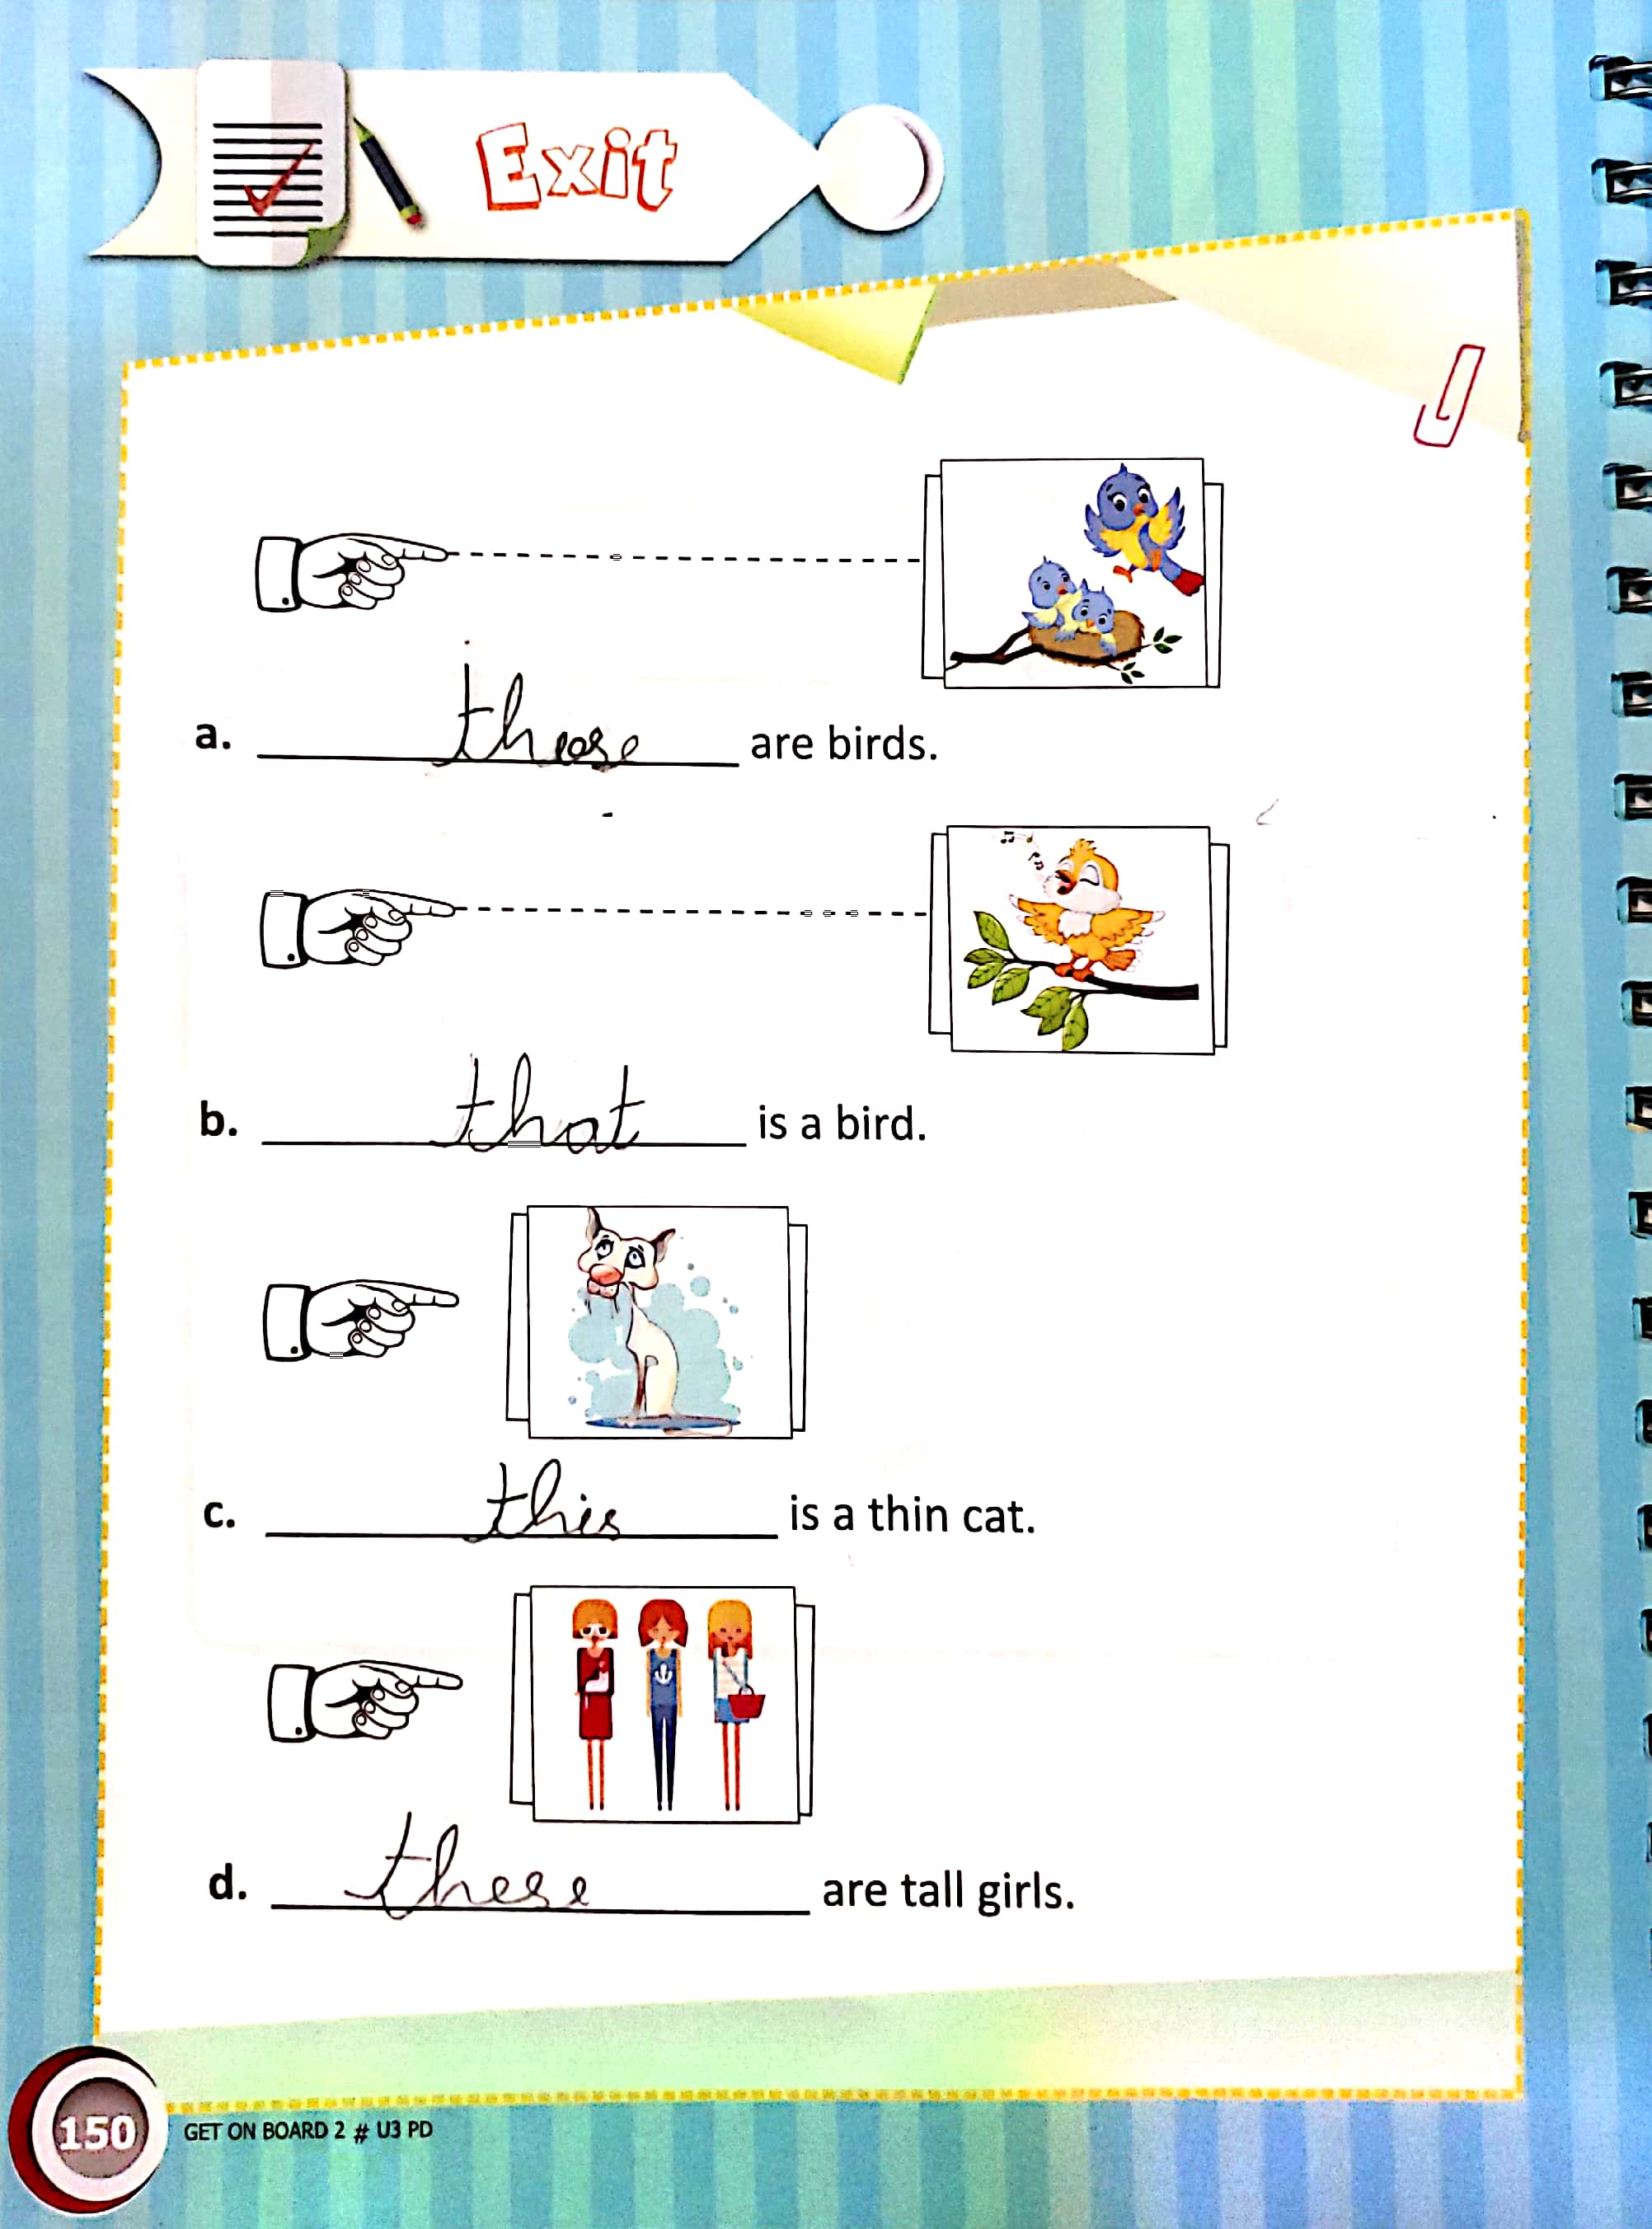 Exit
a. those are birds.
b. that is a bird.
c. this is a thin cat.
d. these are tall girls.
150 GET ON BOARD 2 # U3 PD